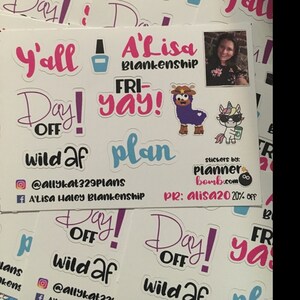 Y'all
A'Lisa
Blankenship
Day!
OFF
FRI-
YAY!
wild AF
plan
@allykat229plans
A'Lisa Haley Blankenship
stickers by:
planner
bomb.com
PR: alisa20 20% OFF
Day!
OFF
wild AF
Day!
OFF
YAY!
wild AF
@allykat229plans
A'Lisa Haley Blankenship